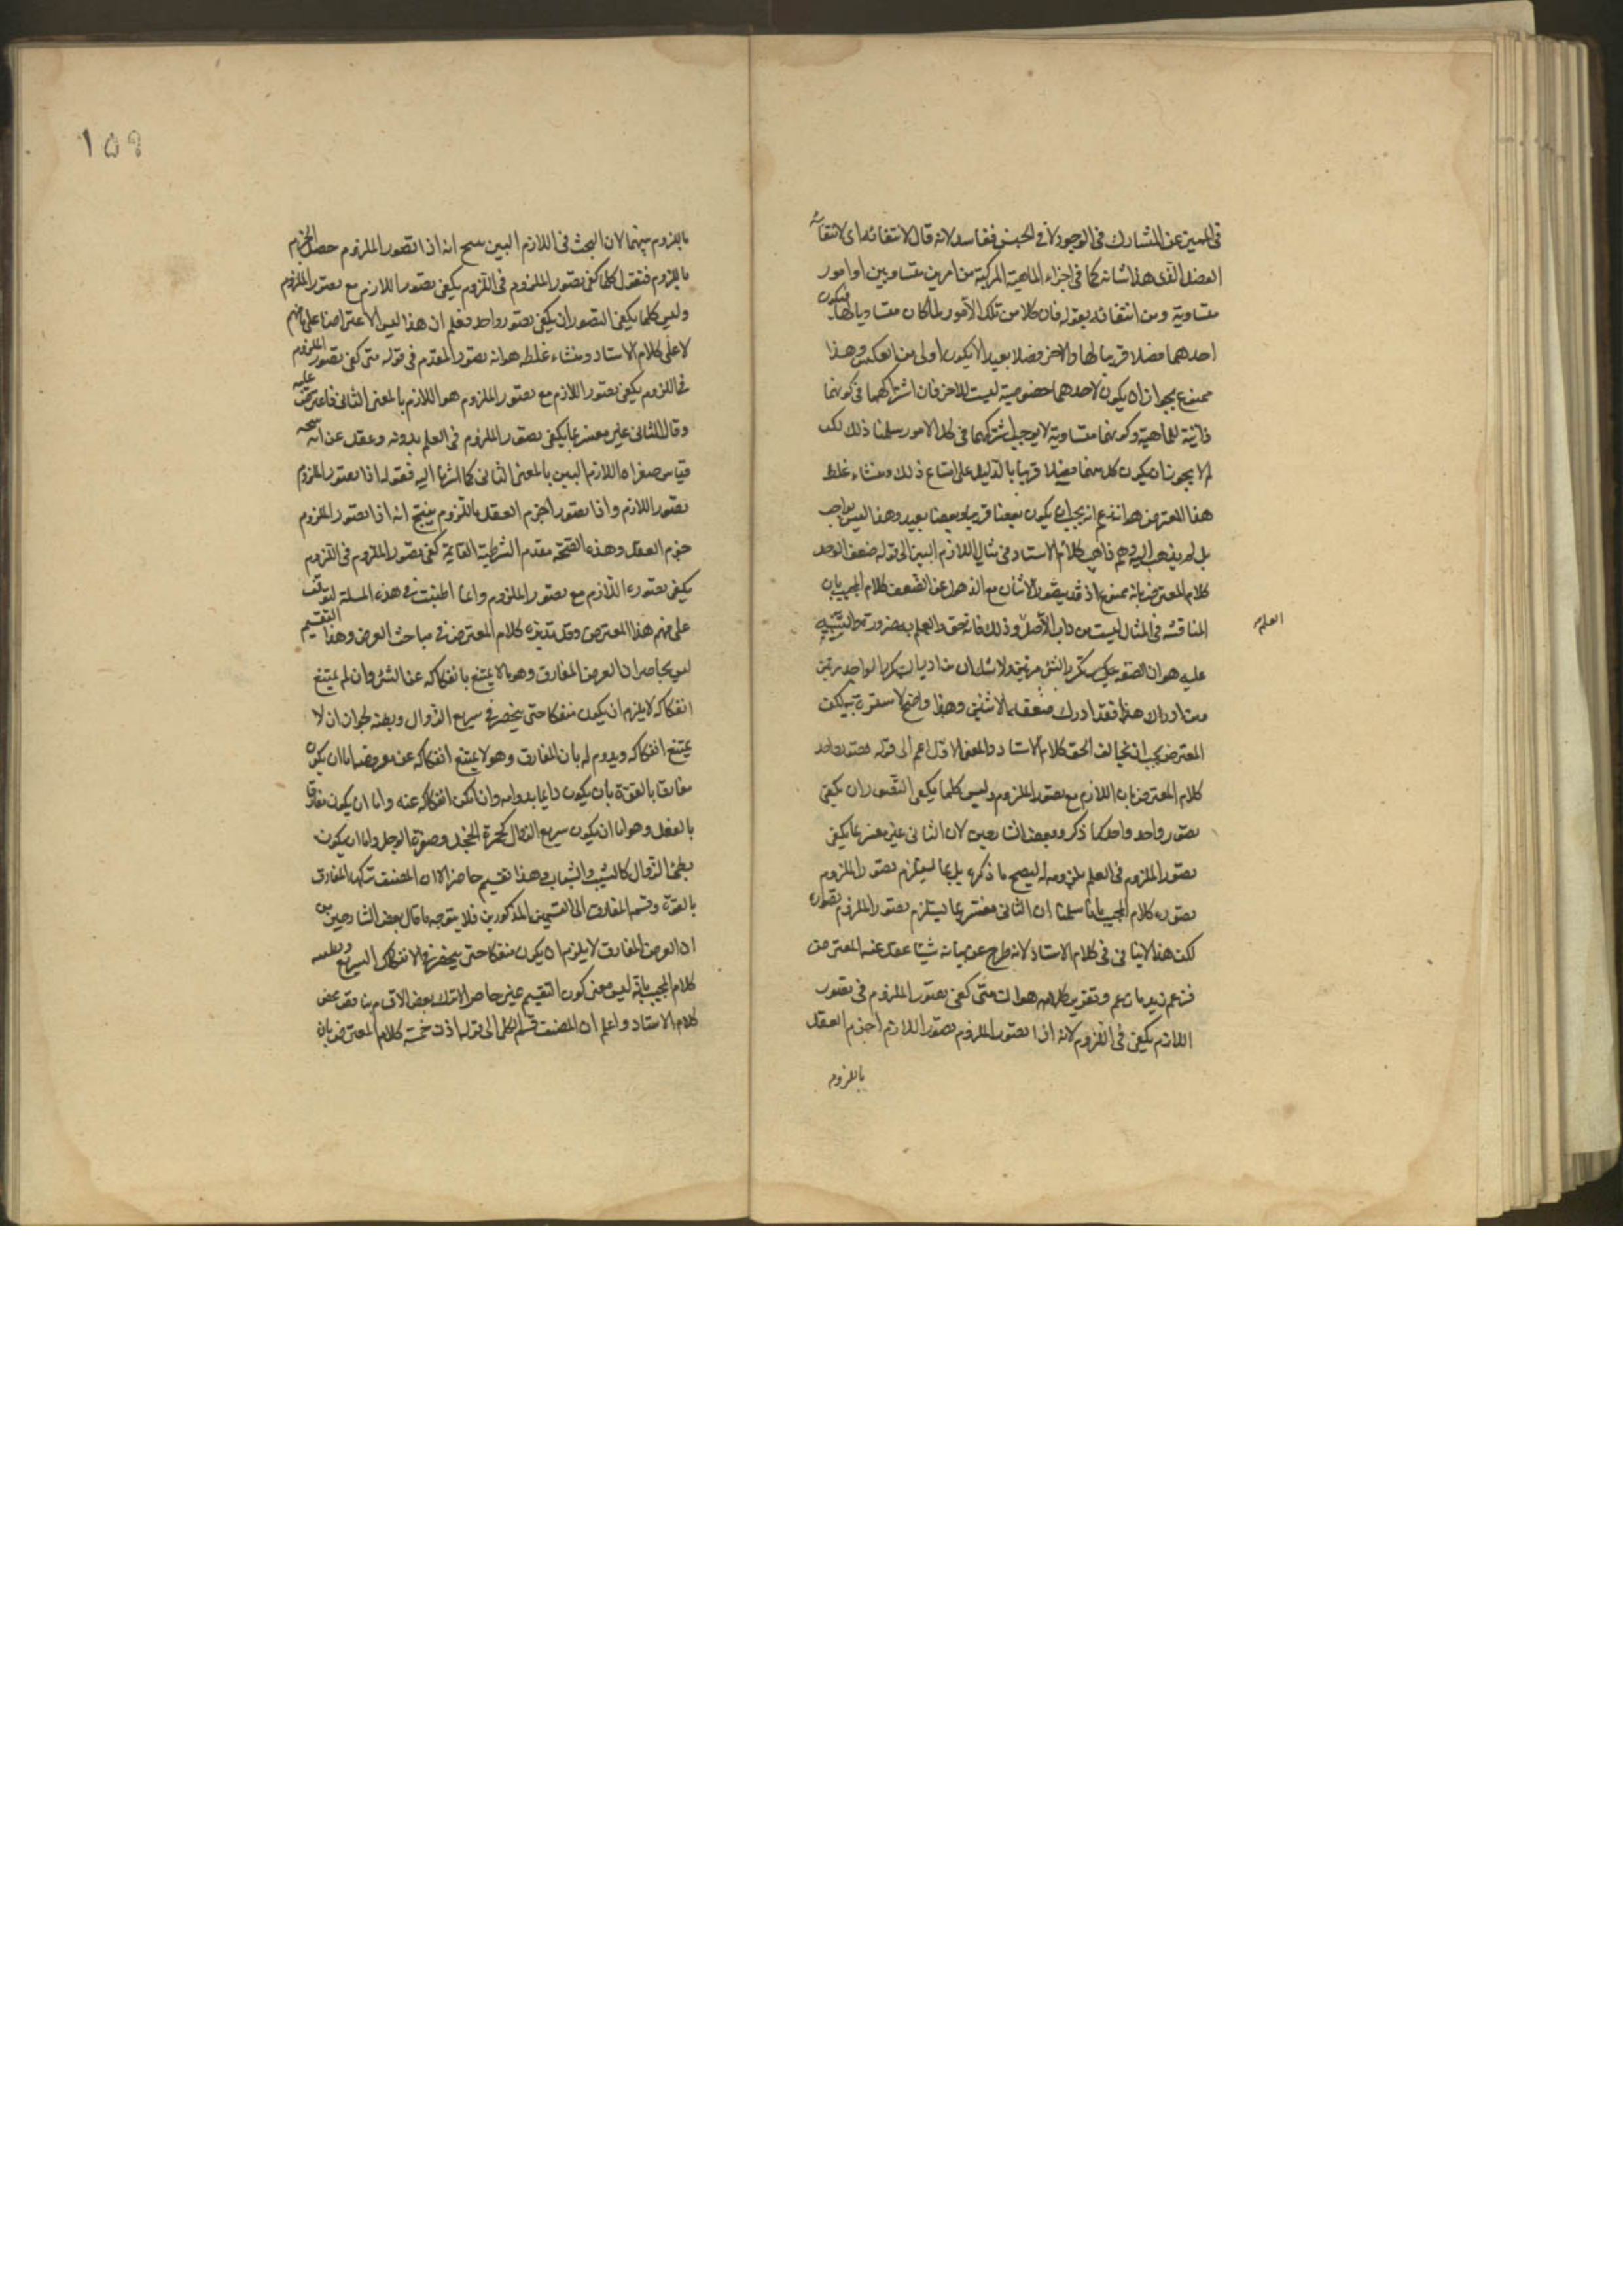 في المميز عن المشارك في الوجود لا في الجنس ففاسد لانه قال لانتفائه اى لانتفاء
الفصل الذى هذا شانه كما في اجزاء الماهية المركبة من امرين متساويين او امور
متساوية ومن انتفائه بقوله فان كلا من تلك الامور لما كان مساويا لها فيكون
احدهما فصلا قريبا لها والاخر فصلا بعيدا لا يكون اولى من العكس وهذا
ممنوع بجواز ان يكون لاحدهما خصوصية ليست للاخر فان اشتراكهما في كونهما
ذاتية للماهية وكونهما متساوية لا يوجب اشتراكهما في كل الامور سلمنا ذلك لكن
لم لا يجوز ان يكون كل منهما فصلا قريبا بالدليل على امتناع ذلك ومنشاء غلط
هذا المعترض هو انه زعم انه يجب ان يكون بعضا قريبا وبعضا بعيدا وهذا ليس بواجب
بل لم يذهب اليه وهم ذاهب كلام الاستاد في مثال اللازم البين الى قوله ضعف الوحد
كلام المعترض بانه ممنوع اذ قد يتصور الاثنان مع الذهول عن الضعف كلام المجيب بان
المناقشة في المثال ليست من داب الافاضل وذلك فانه حق والعلم به ضرورة والتنبيه
العلم
عليه هو ان الضعف عبارة تكرير الشئ مرتين ولا شك ان
المعترض يجب ان يخالف الحق كلام الاستاد والمعنى الاول اعم الى قوله تصور واحد
كلام المعترض بان اللازم مع تصور الملزوم وليس كلما يكفي التصوران يكفي
تصور واحد واحد كما ذكره بعض الشارحين لان الثاني غير مفسر بما يكفي
تصور الملزوم في العلم بلزومه له ليصح ما ذكره بل بما يستلزم تصور الملزوم
تصوره كلام المجيب بانا سلمنا ان الثاني مفسر بما يستلزم تصور الملزوم تصوره
لكن هذا لا ينافي في كلام الاستاد لانه طرح عن بيانه شيئا غفل عنه المعترض
فزعم زيد ما زعم وتقرير كلامه هو ان متى كفى تصور الملزوم في تصور
اللازم يكفي في اللزوم لانه اذا تصور الملزوم تصور اللازم اجزم العقل
باللزوم
١٥٩
باللزوم بينهما لان البحث في اللازم البين صح انه اذا تصور الملزوم حصل الجزم
باللزوم فنقول كلما كفى تصور الملزوم في اللزوم يكفي تصور اللازم مع تصور الملزوم
وليس كلما يكفي التصوران يكفي تصور واحد فعلم ان هذا ليس الا اعتراضا على فهم
لا على كلام الاستاد ومنشاء غلطه هو انه تصور المقدم في قوله متى كفى تصور الملزوم
في اللزوم يكفي تصور اللازم مع تصور الملزوم هو اللازم بالمعنى الثاني فاعترض عليه
وقال الثاني غير مفسر بما يكفي تصور الملزوم في العلم بلزومه وغفل عن انه نتيجة
قياس صغراه اللازم البين بالمعنى الثاني كما اشرنا اليه فقوله اذا تصور الملزوم
تصور اللازم واذا تصور اجزم العقل باللزوم ينتج انه اذا تصور الملزوم
جزم العقل وهذه النتيجة مقدم الشرطية القائمة كفى تصور الملزوم في اللزوم
يكفي تصوره اللازم مع تصور الملزوم وانما اطنبت في هذه المسئلة لتوقف
على فهم هذا المعترض وقلة تدبره كلام المعترض في مباحث العرض وهذا التقسيم
ليس بحاصر ان العرض المفارق وهو ما لا يمتنع انفكاكه عن الشئ وان لم يمتنع
انفكاكه لا يلزم ان يكون منفكا حتى ينحصر في سريع الزوال وبطيئه لجواز ان لا
يمتنع انفكاكه ويدوم له بان المفارق وهو لا يمتنع انفكاكه عن معروضه اما ان يكون
مفارقا بالقوة بان يكون دائما بدوامه وان امكن انفكاكه عنه واما ان يكون مفارقا
بالفعل وهو اما ان يكون سريع الزوال كحمرة الخجل وصفرة الوجل واما ان يكون
بطئ الزوال كالشيب والشباب وهذا تقسيم حاصر الا ان المصنف ترك المفارق
بالقوة وقسم المفارق الى القسمين المذكورين فلا يتوجه ما قال بعض الشارحين من
ان العرض المفارق لا يلزم ان يكون منفكا حتى ينحصر في الانفكاك السريع وبطيئه
كلام المجيب بانه ليس معنى كون التقسيم غير حاصر الا ترك بعض الاقسام
كلام الاستاد واعلم ان المصنف قسم الكلى الى قوله اذن خمسة كلام المعترض بان